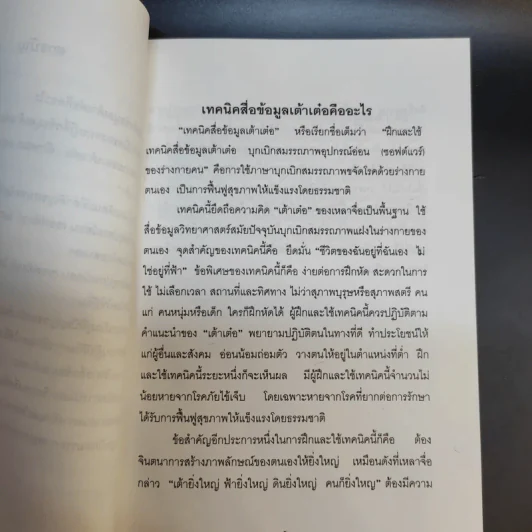 เทคนิคสื่อข้อมูลเต้าเต๋อคืออะไร
“เทคนิคสื่อข้อมูลเต้าเต๋อ” หรือเรียกชื่อเต็มว่า “ฝึกและใช้
เทคนิคสื่อข้อมูลเต้าเต๋อ บุกเบิกสมรรถภาพอุปกรณ์อ่อน (ซอฟต์แวร์)
ของร่างกายคน” คือการใช้ภาษาบุกเบิกสมรรถภาพขจัดโรคด้วยร่างกาย
ตนเอง เป็นการฟื้นฟูสุขภาพให้แข็งแรงโดยธรรมชาติ
เทคนิคนี้ยึดถือความคิด “เต้าเต๋อ” ของเหลาจื่อเป็นพื้นฐาน ใช้
สื่อข้อมูลวิทยาศาสตร์สมัยปัจจุบันบุกเบิกสมรรถภาพแฝงในร่างกายของ
ตนเอง จุดสำคัญของเทคนิคนี้คือ ยึดมั่น “ชีวิตของฉันอยู่ที่ฉันเอง ไม่
ใช่อยู่ที่ฟ้า” ข้อพิเศษของเทคนิคนี้ก็คือ ง่ายต่อการฝึกหัด สะดวกในการ
ใช้ ไม่เลือกเวลา สถานที่และทิศทาง ไม่ว่าสุภาพบุรุษหรือสุภาพสตรี คน
แก่ คนหนุ่มหรือเด็ก ใครก็ฝึกหัดได้ ผู้ฝึกและใช้เทคนิคนี้ควรปฏิบัติตาม
คำแนะนำของ “เต้าเต๋อ” พยายามปฏิบัติตนในทางที่ดี ทำประโยชน์ให้
แก่ผู้อื่นและสังคม อ่อนน้อมถ่อมตัว วางตนให้อยู่ในตำแหน่งที่ต่ำ ฝึก
และใช้เทคนิคนี้ระยะหนึ่งก็จะเห็นผล มีผู้ฝึกและใช้เทคนิคนี้จำนวนไม่
น้อยหายจากโรคภัยไข้เจ็บ โดยเฉพาะหายจากโรคที่ยากต่อการรักษา
ได้รับการฟื้นฟูสุขภาพให้แข็งแรงโดยธรรมชาติ
ข้อสำคัญอีกประการหนึ่งในการฝึกและใช้เทคนิคนี้ก็คือ ต้อง
จินตนาการสร้างภาพลักษณ์ของตนเองให้ยิ่งใหญ่ เหมือนดังที่เหลาจื่อ
กล่าว “เต้ายิ่งใหญ่ ฟ้ายิ่งใหญ่ ดินยิ่งใหญ่ คนก็ยิ่งใหญ่” ต้องมีความ